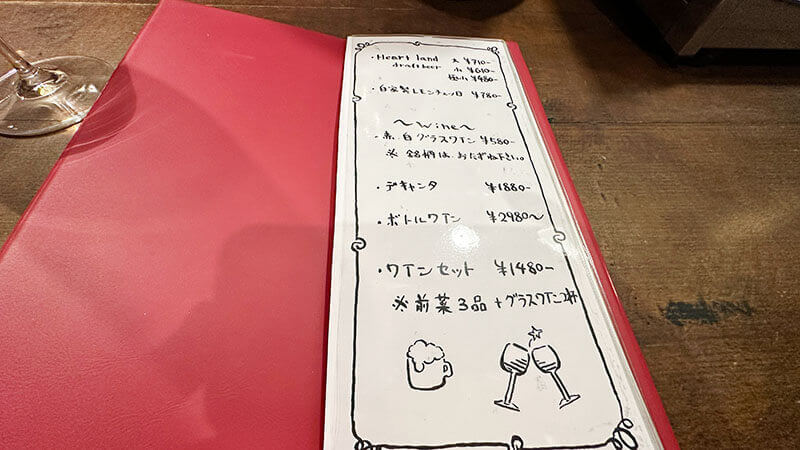 ・Heart land 大 ¥710-
draft beer 小 ¥610-
極小 ¥480-
・自家製レモンチェッロ ¥780-
～Wine～
・赤、白グラスワイン ¥580-
※ 銘柄は、おたずね下さい。
・デキャンタ ¥1880-
・ボトルワイン ¥2980～
・ワインセット ¥1480-
※前菜3品+グラスワイン2杯